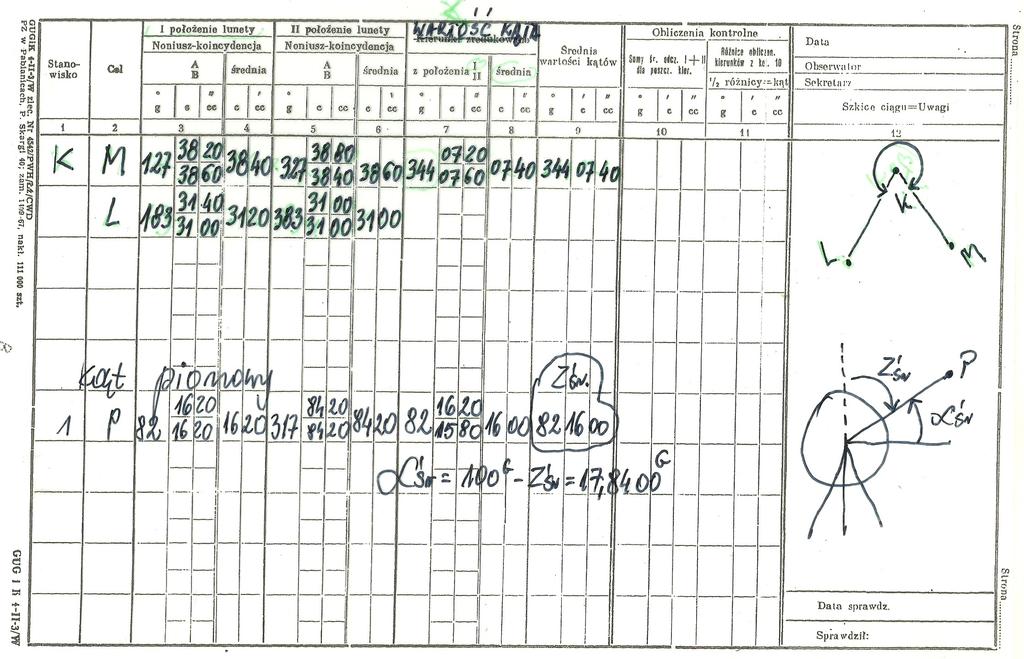 WARTOŚĆ KĄTA
I położenie lunety II położenie lunety Kierunki zredukowane Obliczenia kontrolne Data
Noniusz-koincydencja Noniusz-koincydencja Średnia wartości kątów Sumy śr. odcz. I+II dla poszcz. kier. Różnice obliczon. kierunków z kol. 10 Obserwator
Stanowisko Cel A B średnia A B średnia z położenia I II średnia ½ różnicy=kąt Sekretarz
Szkice ciągu=Uwagi
° ' " ' " ° ' " ' " ° ' " ' " ° ' " ° ' " ° ' "
g c cc c cc g c cc c cc g c cc c cc g c cc g c cc g c cc
1 2 3 4 5 6 7 8 9 10 11 12
K M 127 38 20 38 40 327 38 80 38 60 344 07 20 07 40 344 07 40
38 60 38 40 07 60
L 183 31 40 31 20 383 31 00 31 00
31 00 31 00
K
L M
Kąt pionowy Zśr.
1 P 82 16 20 16 20 317 84 20 84 20 82 16 20 16 00 82 16 00
16 20 84 20 15 80
αśr = 100ᴳ - Zśr = 17,8400ᴳ
Zśr P
αśr
Data sprawdz.
Sprawdził:
Strona
Strona
GUGIK 4-II-3/W
GUGIK 4-II-3/W zlec. Nr 4542/PWH/22/CWD
PZ w Pabianicach, P. Skargi 40; zam. 1109-67, nakł. 111 000 szt.